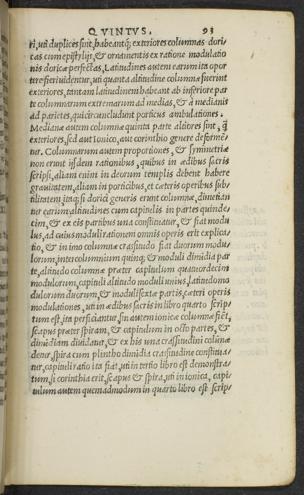 QVINTVS. 93
ri, uti duplices sint, habeantq; exteriores columnas dori/
cas cum epistylijs, & ornamentis ex ratione modulatio
nis doricæ perfectas, Latitudines autem earum ita opor
tere fieri uidentur, uti quanta altitudine columnæ fuerint
exteriores, tantam latitudinem habeant ab inferiore par
te columnarum extremarum ad medias, & à medianis
ad parietes, qui circuncludunt porticus ambulationes.
Medianæ autem columnæ quinta parte altiores sint, q̃
exteriores, sed aut ionico, aut corinthio genere deforme/
tur. Columnarum autem proportiones, & symmetriæ
non erunt ijsdem rationibus, quibus in ædibus sacris
scripsi, aliam enim in deorum templis debent habere
grauitatem, aliam in porticibus, et cæteris operibus sub/
tilitatem, itaq; si dorici generis erunt columnæ, dimetian
tur earum altitudines cum capitulis in partes quinde/
cim, & ex eis partibus una constituatur, & fiat modu
lus, ad cuius moduli rationem omnis operis erit explica/
tio, & in imo columnæ crassitudo fiat duorum modu/
lorum, intercolumnium quinq; & moduli dimidia par
te, altitudo columnæ præter capitulum quatuordecim
modulorum, capituli altitudo moduli unius, latitudo mo
dulorum duorum, & moduli sextæ partis, cæteri operis
modulationes, uti in ædibus sacris in libro quarto scrip/
tum est, ita perficiantur, sin autem ionicæ columnæ fiẽt,
scapus præter spiram, & capitulum in octo partes, &
dimidiam diuidatur, & ex his una crassitudini colũnæ
detur, spira cum plintho dimidia crassitudine constitua/
tur, capituli ratio ita fiat, uti in tertio libro est demonstra/
tum, si corinthia erit, scapus & spira, uti in ionica, capi/
tulum autem quemadmodum in quarto libro est scrip/